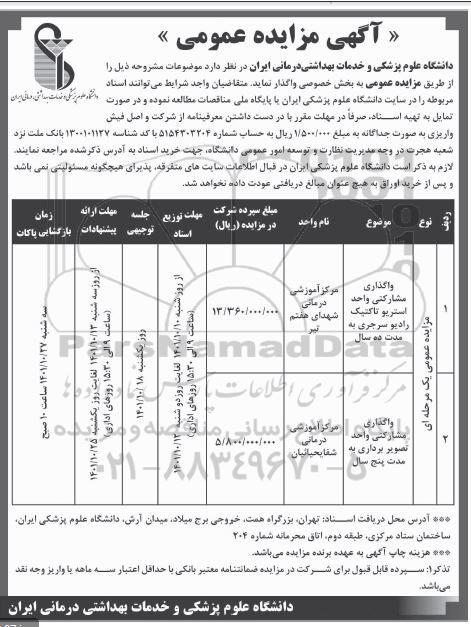 « آگهی مزایده عمومی »
دانشگاه علوم پزشکی و خدمات بهداشتی درمانی ایران
دانشگاه علوم پزشکی و خدمات بهداشتی‌درمانی ایران در نظر دارد موضوعات مشروحه ذیل را
از طریق مزایده عمومی به بخش خصوصی واگذار نماید. متقاضیان واجد شرایط می‌توانند اسناد
مربوطه را در سایت دانشگاه علوم پزشکی ایران یا پایگاه ملی مناقصات مطالعه نموده و در صورت
تمایل به تهیه اسناد، صرفاً در مهلت مقرر با در دست داشتن معرفینامه از شرکت و اصل فیش
واریزی به صورت جداگانه به مبلغ ۱/۵۰۰/۰۰۰ ریال به حساب شماره ۵۱۵۴۳۰۳۲۰۴ با کد شناسه ۱۳۰۰۱۰۱۱۲۷ بانک ملت نزد
شعبه هجرت در وجه مدیریت نظارت و توسعه امور عمومی دانشگاه، جهت خرید اسناد به آدرس ذکرشده مراجعه نمایند.
لازم به ذکر است دانشگاه علوم پزشکی ایران در قبال اطلاعات سایت های متفرقه، پذیرای هیچگونه مسئولیتی نمی باشد
و پس از خرید اوراق به هیچ عنوان مبالغ دریافتی عودت داده نخواهد شد.
ردیف نوع موضوع نام واحد مبلغ سپرده شرکت در مزایده (ریال) مهلت توزیع اسناد جلسه توجیهی مهلت ارائه پیشنهادات زمان بازگشایی پاکات
۱
مزایده عمومی یک مرحله ای
واگذاری
مشارکتی واحد
استریو تاکتیک
رادیو سرجری به
مدت ده سال
مرکزآموزشی
درمانی
شهدای هفتم
تیر
۱۳/۳۶۰/۰۰۰/۰۰۰
از روز شنبه ۱۴۰۱/۱۰/۱۰ لغایت روز دو شنبه ۱۴۰۱/۱۰/۱۲
(ساعت ۹ الی ۱۵:۳۰ روزهای اداری)
روز یکشنبه ۱۴۰۱/۱۰/۱۸
از روز سه شنبه ۱۴۰۱/۱۰/۱۳ لغایت روز یکشنبه ۱۴۰۱/۱۰/۲۵
(ساعت ۹ الی ۱۵:۳۰ روزهای اداری)
سه شنبه ۱۴۰۱/۱۰/۲۷ ساعت ۱۰ صبح
۲
واگذاری
مشارکتی واحد
تصویر برداری به
مدت پنج سال
مرکزآموزشی
درمانی
شفایحیائیان
۵/۸۰۰/۰۰۰/۰۰۰
ParsNamadData
مرکز فرآوری اطلاعات پارس نماد داده ها
پایگاه اطلاع رسانی مناقصه و مزایده
۰۲۱-۸۸۳۴۹۶۷۰-۵
*** آدرس محل دریافت اسناد: تهران، بزرگراه همت، خروجی برج میلاد، میدان آرش، دانشگاه علوم پزشکی ایران،
ساختمان ستاد مرکزی، طبقه دوم، اتاق محرمانه شماره ۲۰۴
*** هزینه چاپ آگهی به عهده برنده مزایده می‌باشد.
تذکر۱: سپرده قابل قبول برای شرکت در مزایده ضمانتنامه معتبر بانکی با حداقل اعتبار سه ماهه یا واریز وجه نقد
می‌باشد.
دانشگاه علوم پزشکی و خدمات بهداشتی درمانی ایران